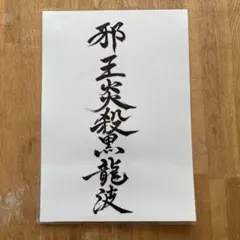 邪王炎殺黒龍波